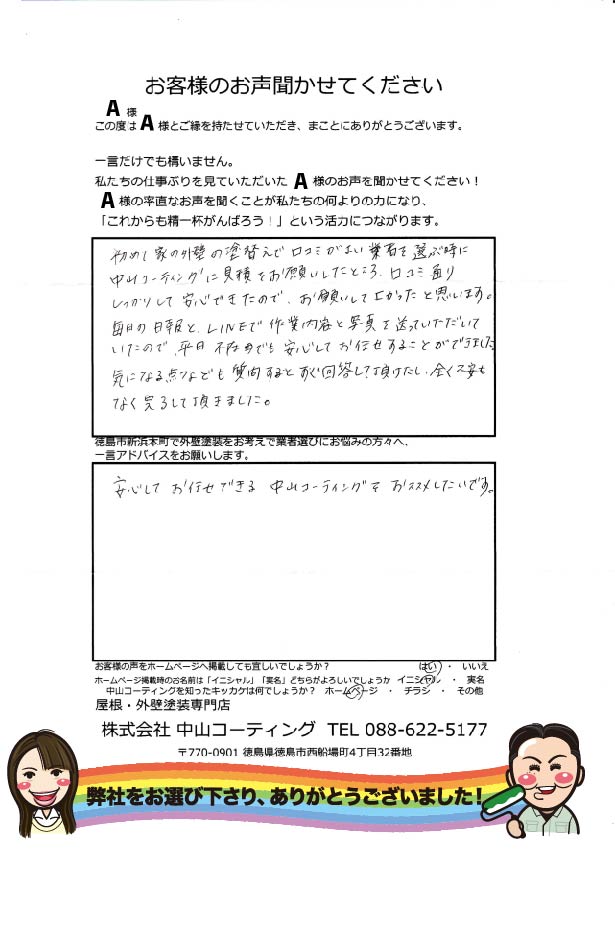 お客様のお声聞かせてください
A 様
この度は A 様とご縁を持たせていただき、まことにありがとうございます。
一言だけでも構いません。
私たちの仕事ぶりを見ていただいた A 様のお声を聞かせてください！
A 様の率直なお声を聞くことが私たちの何よりの力になり、
「これからも精一杯がんばろう！」という活力につながります。
初めて家の外壁の塗替えで口コミがよい業者を選ぶ時に
中山コーティングに見積をお願いしたところ、口コミ通り
しっかりして安心できたので、お願いしてよかったと思います。
毎日の日報と、LINEで作業内容と写真を送っていただいて
いたので、平日不在の時でも安心してお任せすることができました
気になる点なども質問するとすぐ回答して頂けたし、全く不安も
なく完了して頂きました。
徳島市新浜本町で外壁塗装をお考えで業者選びにお悩みの方々へ、
一言アドバイスをお願いします。
安心してお任せできる中山コーティングをおススメしたいです。
お客様の声をホームページへ掲載しても宜しいでしょうか？ はい ・ いいえ
ホームページ掲載時のお名前は「イニシャル」「実名」どちらがよろしいでしょうか イニシャル ・ 実名
中山コーティングを知ったキッカケは何でしょうか？ ホームページ ・ チラシ ・ その他
屋根・外壁塗装専門店
株式会社 中山コーティング TEL 088-622-5177
〒770-0901 徳島県徳島市西船場町4丁目32番地
弊社をお選び下さり、ありがとうございました！